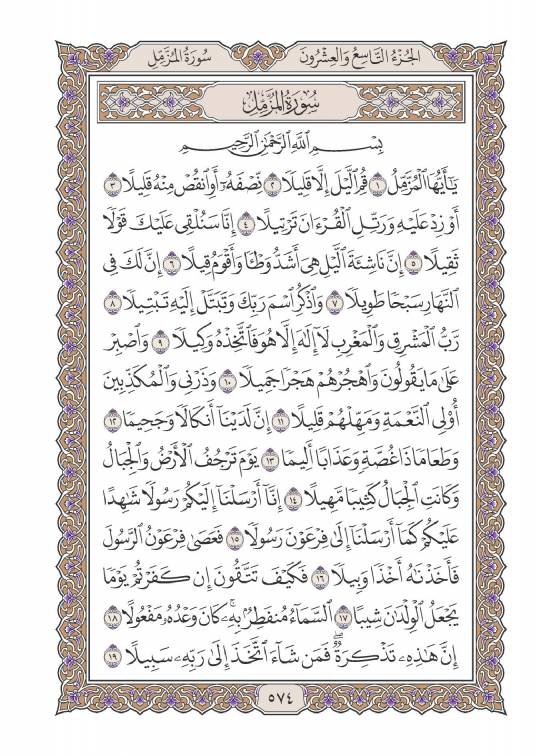 الجُزءُ التَّاسِعُ وَالعِشْرُونَ
سُورَةُ المُزَّمِّلِ
سُورَةُ المُزَّمِّلِ
بِسْمِ ٱللَّهِ ٱلرَّحْمَٰنِ ٱلرَّحِيمِ
يَٰٓأَيُّهَا ٱلْمُزَّمِّلُ ١ قُمِ ٱلَّيْلَ إِلَّا قَلِيلًا ٢ نِّصْفَهُۥٓ أَوِ ٱنقُصْ مِنْهُ قَلِيلًا ٣
أَوْ زِدْ عَلَيْهِ وَرَتِّلِ ٱلْقُرْءَانَ تَرْتِيلًا ٤ إِنَّا سَنُلْقِى عَلَيْكَ قَوْلًا
ثَقِيلًا ٥ إِنَّ نَاشِئَةَ ٱلَّيْلِ هِىَ أَشَدُّ وَطْـًٔا وَأَقْوَمُ قِيلًا ٦ إِنَّ لَكَ فِى
ٱلنَّهَارِ سَبْحًا طَوِيلًا ٧ وَٱذْكُرِ ٱسْمَ رَبِّكَ وَتَبَتَّلْ إِلَيْهِ تَبْتِيلًا ٨
رَّبُّ ٱلْمَشْرِقِ وَٱلْمَغْرِبِ لَآ إِلَٰهَ إِلَّا هُوَ فَٱتَّخِذْهُ وَكِيلًا ٩ وَٱصْبِرْ
عَلَىٰ مَا يَقُولُونَ وَٱهْجُرْهُمْ هَجْرًا جَمِيلًا ١٠ وَذَرْنِى وَٱلْمُكَذِّبِينَ
أُو۟لِى ٱلنَّعْمَةِ وَمَهِّلْهُمْ قَلِيلًا ١١ إِنَّ لَدَيْنَآ أَنكَالًا وَجَحِيمًا ١٢
وَطَعَامًا ذَا غُصَّةٍ وَعَذَابًا أَلِيمًا ١٣ يَوْمَ تَرْجُفُ ٱلْأَرْضُ وَٱلْجِبَالُ
وَكَانَتِ ٱلْجِبَالُ كَثِيبًا مَّهِيلًا ١٤ إِنَّآ أَرْسَلْنَآ إِلَيْكُمْ رَسُولًا شَٰهِدًا
عَلَيْكُمْ كَمَآ أَرْسَلْنَآ إِلَىٰ فِرْعَوْنَ رَسُولًا ١٥ فَعَصَىٰ فِرْعَوْنُ ٱلرَّسُولَ
فَأَخَذْنَٰهُ أَخْذًا وَبِيلًا ١٦ فَكَيْفَ تَتَّقُونَ إِن كَفَرْتُمْ يَوْمًا
يَجْعَلُ ٱلْوِلْدَٰنَ شِيبًا ١٧ ٱلسَّمَآءُ مُنفَطِرٌۢ بِهِۦ ۚ كَانَ وَعْدُهُۥ مَفْعُولًا ١٨
إِنَّ هَٰذِهِۦ تَذْكِرَةٌ ۖ فَمَن شَآءَ ٱتَّخَذَ إِلَىٰ رَبِّهِۦ سَبِيلًا ١٩
٥٧٤